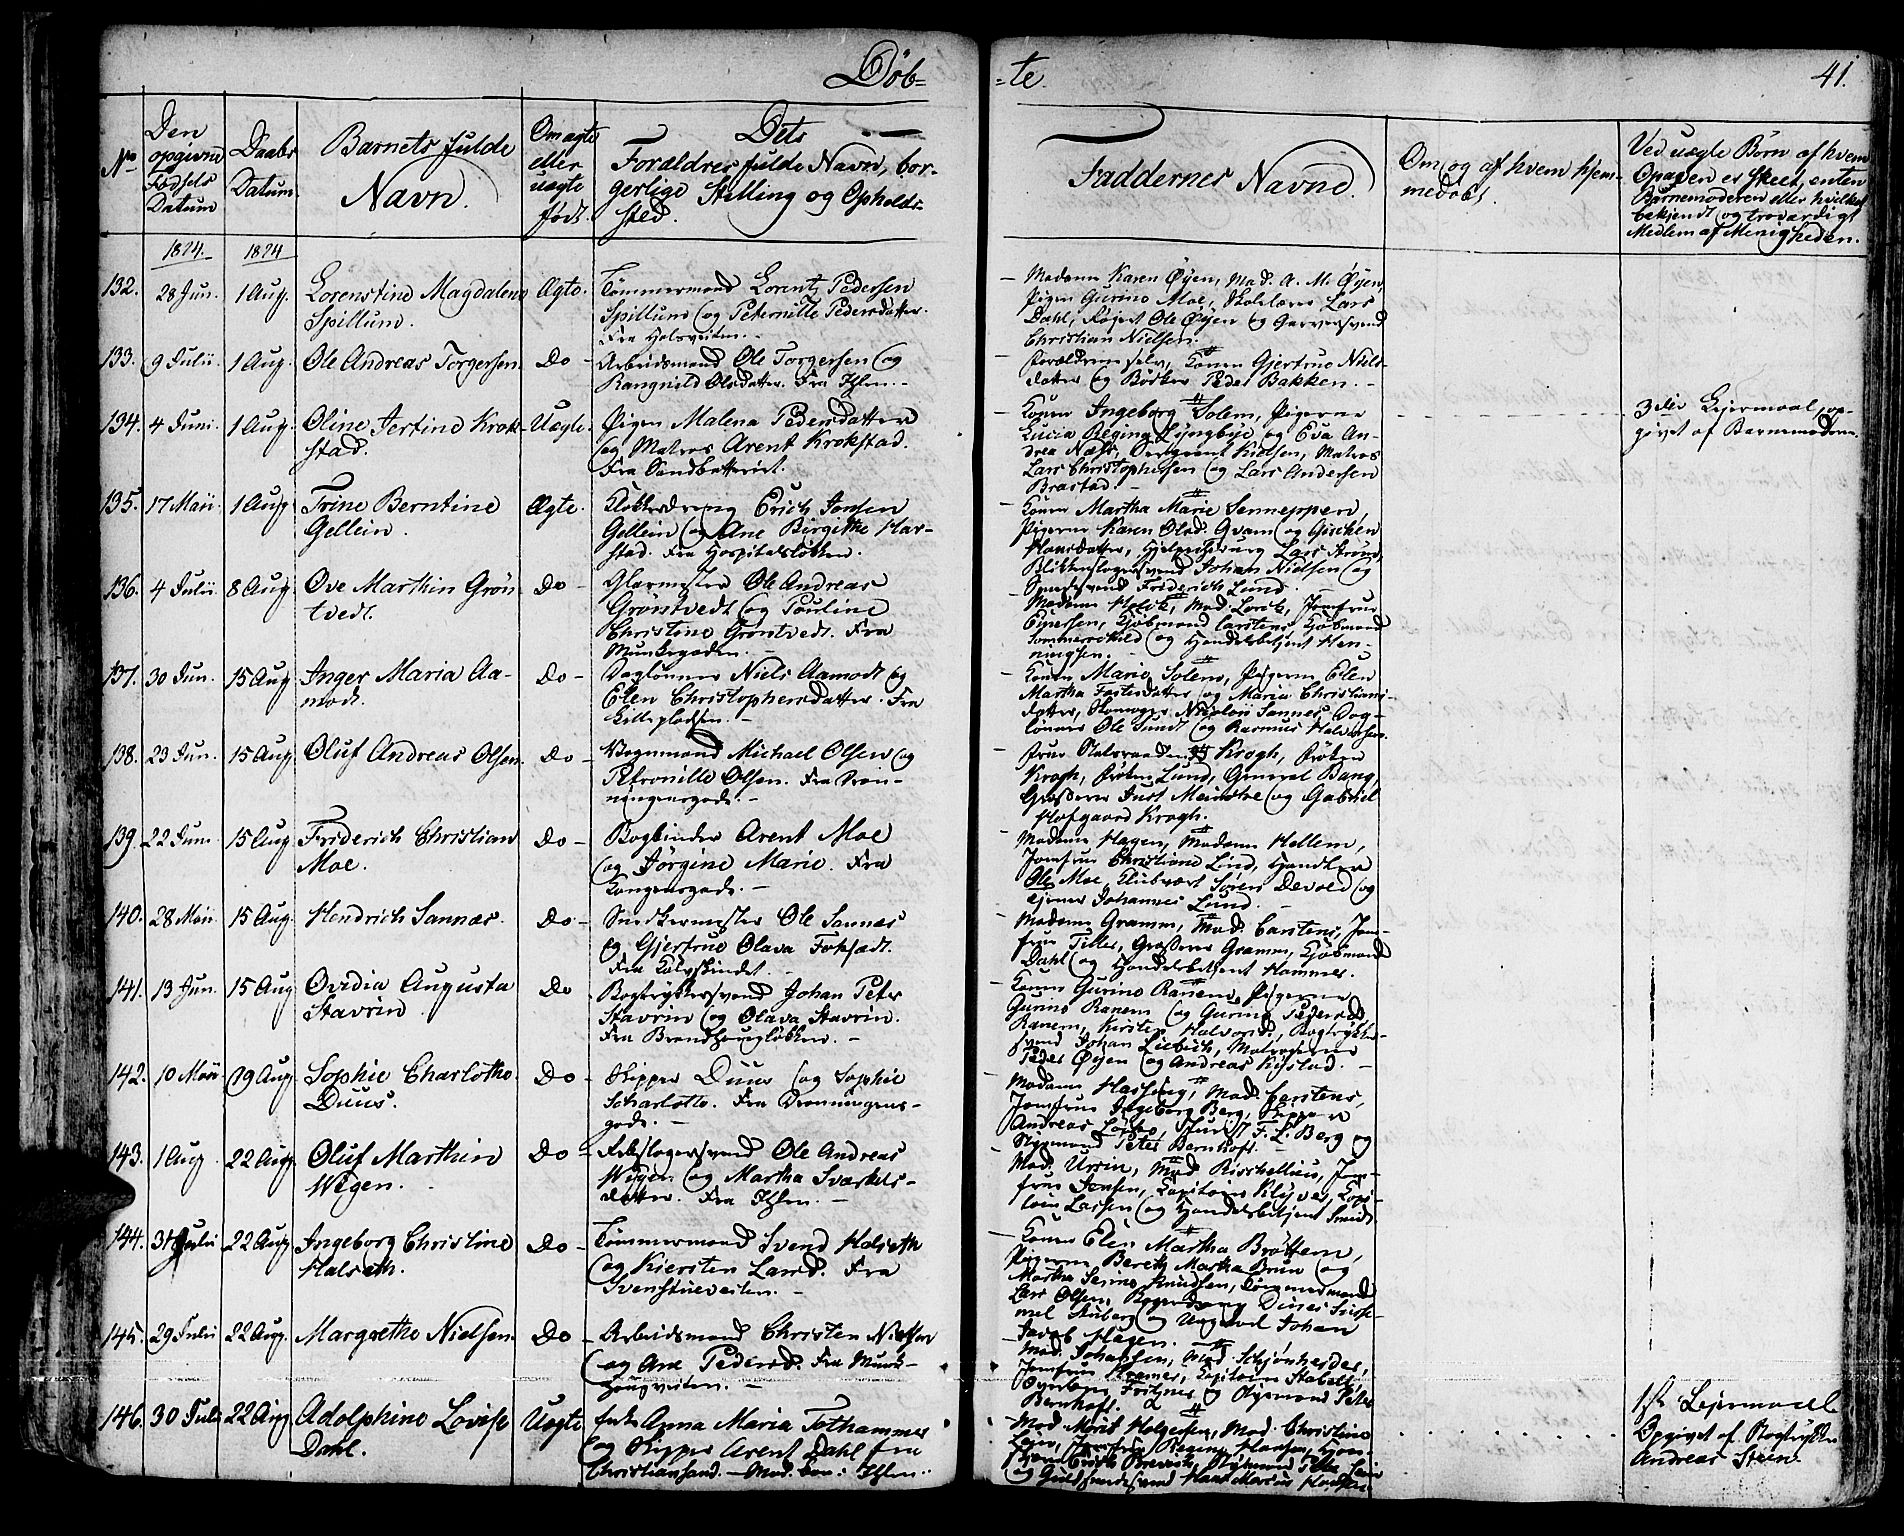 Døb-
-te.
41.
No
Den opgivne Fødsels Datum
Daabs Datum
Barnets fulde Navn.
Om ægte eller uægte født.
Dets Forældres fulde Navn, borgerlige Stilling og Opholdssted.
Faddernes Navne.
Om og af hvem hjemmedøbt.
Ved uægte Børn af hvem Opgaven er skeet, enten Barnemoderen eller hvilket bekjendt og troværdigt Medlem af Menigheden.
1824.
1824
132.
28 Jun.
1 Aug.
Lorenstine Magdalena
Spillum.
Ægte.
Tømmermand Lorentz Pedersen
Spillum og Peternille Pedersdatter.
Madame Karen Øyen, Mad. A. M. Øyen
Pigen Gurine Moe, Skolelærer Lars
Dahl, Ole Øyen og Garversvend
Christian Nielsen.
133.
9 Julii
1 Aug.
Ole Andreas Torgersen.
Do -
Arbeidsmand Ole Torgersen og
Rangnild Olsdatter. Fra Ihlen. -
Forældrene selv, Konen Gjertrue Niels-
datter og Bødker Peder Bakken. -
134.
4 Juni
1 Aug.
Oline Jertine Krok-
stad.
Uægte.
Pigen Malena Pedersdatter
og Matros Arent Krokstad.
Fra Sandbatteriet.
Konen Ingeborg Solem, Pigerne
Lucia Regina Lyngbye og Eva An-
drea Næss, Nielsen, Matros
Lars Christophersen og Lars Andersen
Brastad. -
3die Leiermaal, op-
givet af Barnemoderen.
135.
17 Maii
1 Aug.
Trine Berntine
Gellein.
Ægte.
Erich Jonsen
Gellein og Ane Birgithe Har-
stad. Fra Hospitalsløkken.
Konen Martha Marie Senneppen,
Pigerne Karen Olsd. Qvam og Gjertken
Hansdatter, Lars Strand,
Blikkenslagersvend Johan Nielsen og
Friderich Lund.
136.
4 Julii
8 Aug.
Ove Marthin Grøn-
tvedt.
Do -
Glarmester Ole Andreas
Grøntvedt og Pauline
Christine Grøntvedt. Fra
Munkegaden. -
Madame Holck, Mad. Lorck, Jomfrue
Kjøbmand Carstens, Kjøbmand
Sommerschild og Handelsbetjent Hen-
ningsen.
137.
30 Jun.
15 Aug
Inger Maria Aa-
modt.
Do -
Dagløнner Niels Aamodt og
Elen Christophersdatter. Fra
Konen Marie Solem, Pigerne Elen
Martha Fostersdatter og Maria Christians-
datter, Skomager Nicolai Sannes, Dag-
lønner Ole Sundt og Rasmus Halvorsen.
138.
23 Jun.
15 Aug
Oluf Andreas Olsen.
Do -
Vognmand Michael Olsen og
Petronille Olsen. Fra Dron-
ningensgade. -
Frue Statsraadinde Krogh, Frøken
Krogh, Frøken Lund, General Bang,
Grosserer Just Meincke og Gabriel
Hofgaard Krogh.
139.
22 Juni
15 Aug
Friderich Christian
Moe.
Do -
Bogbinder Arent Moe
og Jørgine Marie. Fra
Kongensgade. -
Madame Hagen, Madame Hellem,
Jomfrue Christiane Lind, Handlende
Ole Moe, Klubvært Søren Devold og
Johannes Lund.
140.
28 Maii
15 Aug.
Hendrich Sannæs.
Do -
Snedkermester Ole Sannæs
og Gjertrue Olava Foksødt.
Fra Kalvskindet.
Madame Gramm, Mad. Carstens, Jom-
frue Tiller, Grosserer Gramm, Kjøbmand
Dahl og Handelsbetjent Hammer.
141.
13 Jun.
15 Aug
Ovidia Augusta
Stavrin.
Do
Bogtrykkersvend Johan Peter
Stavrin og Olava Stavrin.
Fra Brandhougløkken. -
Konen Gurine Ranem, Pigerne
Gurine Ranem og Gurine Pedersd.
Ranem, Kirsten Halvorsd., Bogtrykker-
svend Johan Liebich, Matroserne
Peder Øyen og Andreas Kistad. -
142.
10 Maii
19 Aug
Sophie Charlotha
Duus.
Do -
Skipper Duus og Sophie
Scharlotte. Fra Dronningens-
gade. -
Madame Hassing, Mad. Carstens,
Jomfrue Ingeborg Berg, Skipperne
Andreas F. L. Berg og
Styrmand Peter Bernhoft. -
143.
1 Aug.
22 Aug.
Oluf Marthin
Wigen.
Do -
Ole Andreas
Wigen og Martha Sværkels-
datter. Fra Ihlen. -
Mad. Ursin, Mad. Rischellius, Jom-
frue Jensen, Capitain Klyver, Capi-
tain Lassen og Handelsbetjent Smidt.
144.
31 Julii
22 Aug
Ingeborg Christine
Halseth.
Do -
Tømmermand Svend Halseth
og Kiersten Larsd. Fra
Konen Elen Martha Brøttem,
Pigerne Bereth Martha Brun og
Martha Serina Knudsen, Tømmermand
Lars Olsen,
og Ungkarl Johan
Jacob Hagen.
145.
29 Julii
22 Aug.
Margrethe Nielsen
Do -
Arbeidsmand Christen Nielsen
og Ane Pedersd. Fra Munk-
hougveiten. -
Mad. Johansen, Mad. Schjønheider,
Jomfrue Kramer, Capitain Stabell,
Fritzner og Styrmand Peter
Bernhoft.
146.
30 Juli
22 Aug
Adolphine Lovise
Dahl.
Uægte
Enke Anna Maria Tothammer
og Skipper Arent Dahl fra
Christiansand. - Mod. boe: Ihlen.
Mad. Marit Holgersen, Mad. Christine
Lein, Jomfrue Regine Hansen,
og Guldsmedsvend Hans Marcus
1ste Leiermaal
Opgivet af Bogtrykker
Andreas Steen.